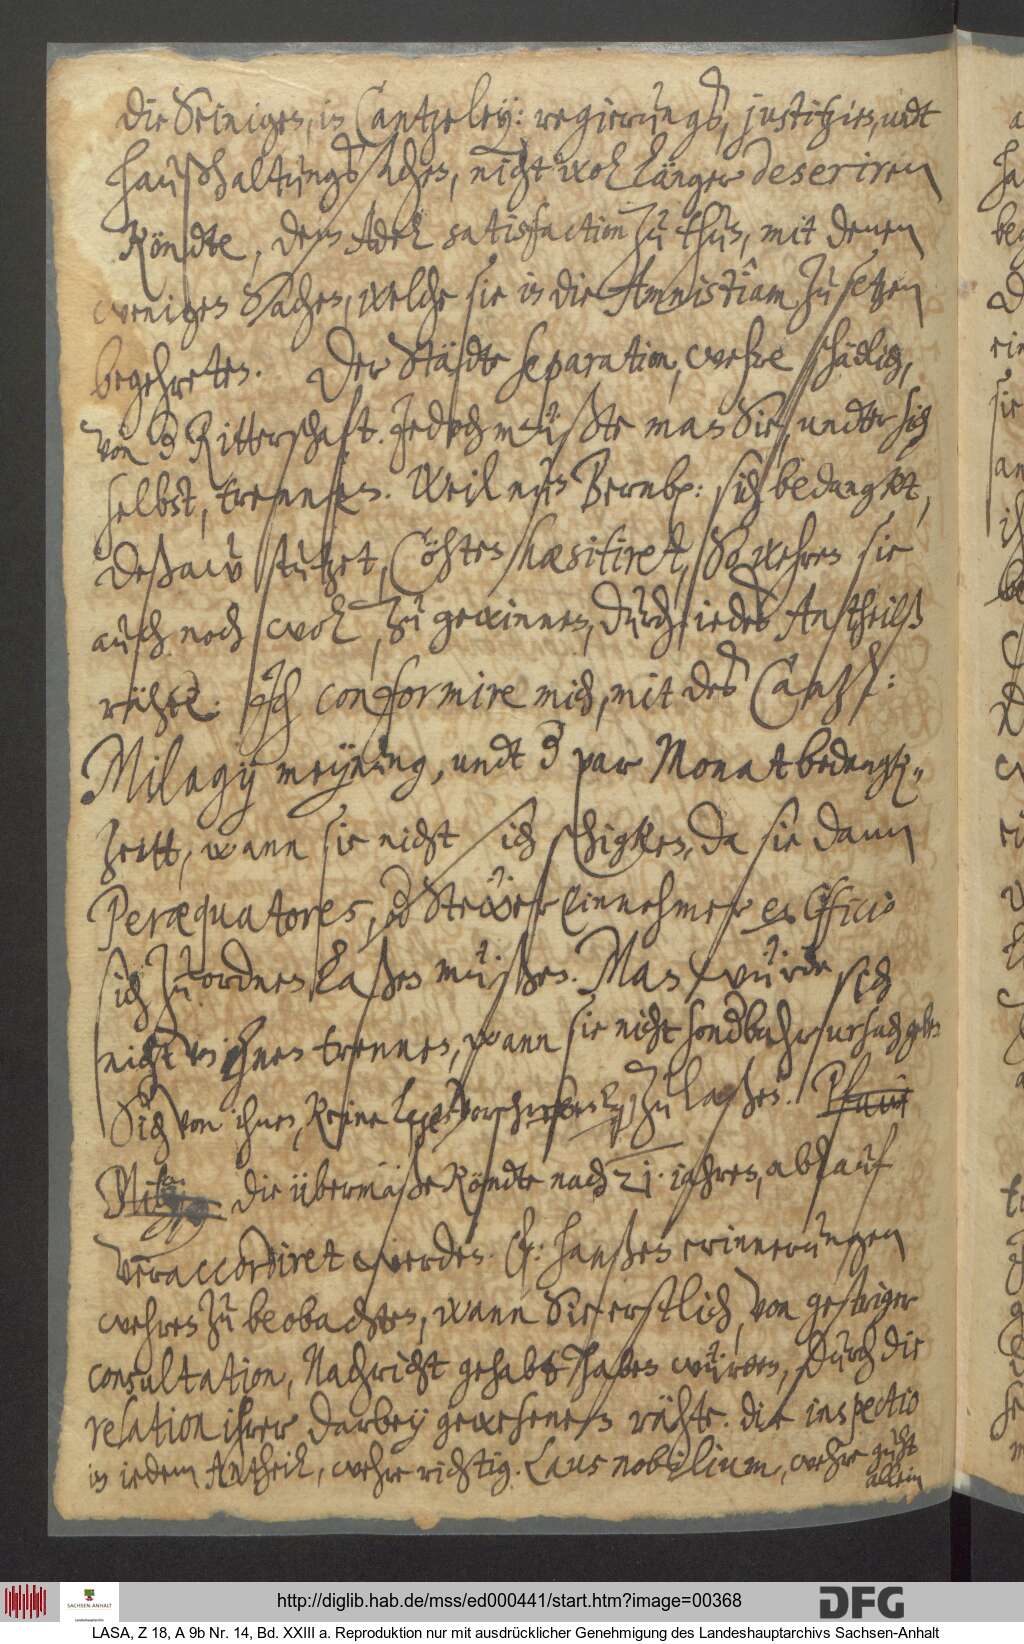 die Seinigen, in Cantzeley: regierungs, justitzien, undt
haußhaltungs sachen, nicht wol länger deseriren
köndte, dem Adel satisfaction zu thun, mit denen
wenigen Sachen, welche sie in die Amnistiam zu setzen
begehreten. Der Städte separation, wehre schädlich,
von d Ritterschafft. Jedoch müßte man Sie, undter sich
selbst, trennen. Weil nun Bernb: sich bedangkt,
Deßaw stutzet, Cöhten hæsitiret, So wehren sie
auch noch wol, zu gewinnen, durch iedes Antheilß
rähte. Ich conformire mich, mit des Cantzl:
Milagij meynung, undt 3 par Monat bedengk"
Zeitt, wann sie nicht sich schigken, da sie dann
Peræquatores, od Stewer Einnehmer ex Officio
sich zu ordnen laßen müßen. Man würde sich
nicht von ihnen trennen, wann sie nicht sonderbahr ursach geben
Sich von ihnen, keine leges vorschreiben zu laßen.
Die übermaße köndte nach 21. iahren, ablauf
veraccordiret werden. E: hansen erinnerungen
wehren zu beobachten, wann Sie erstlich, von gestriger
consultation, Nachricht gehabt haben würden, durch die
relation ihrer darbey gewesenen rähte. die inspectio
in iedem Antheil, wehre richtig. Laus nobilium, wehre gucht
allein
http://diglib.hab.de/mss/ed000441/start.htm?image=00368
DFG
SACHSEN-ANHALT
LASA, Z 18, A 9b Nr. 14, Bd. XXIII a. Reproduktion nur mit ausdrücklicher Genehmigung des Landeshauptarchivs Sachsen-Anhalt